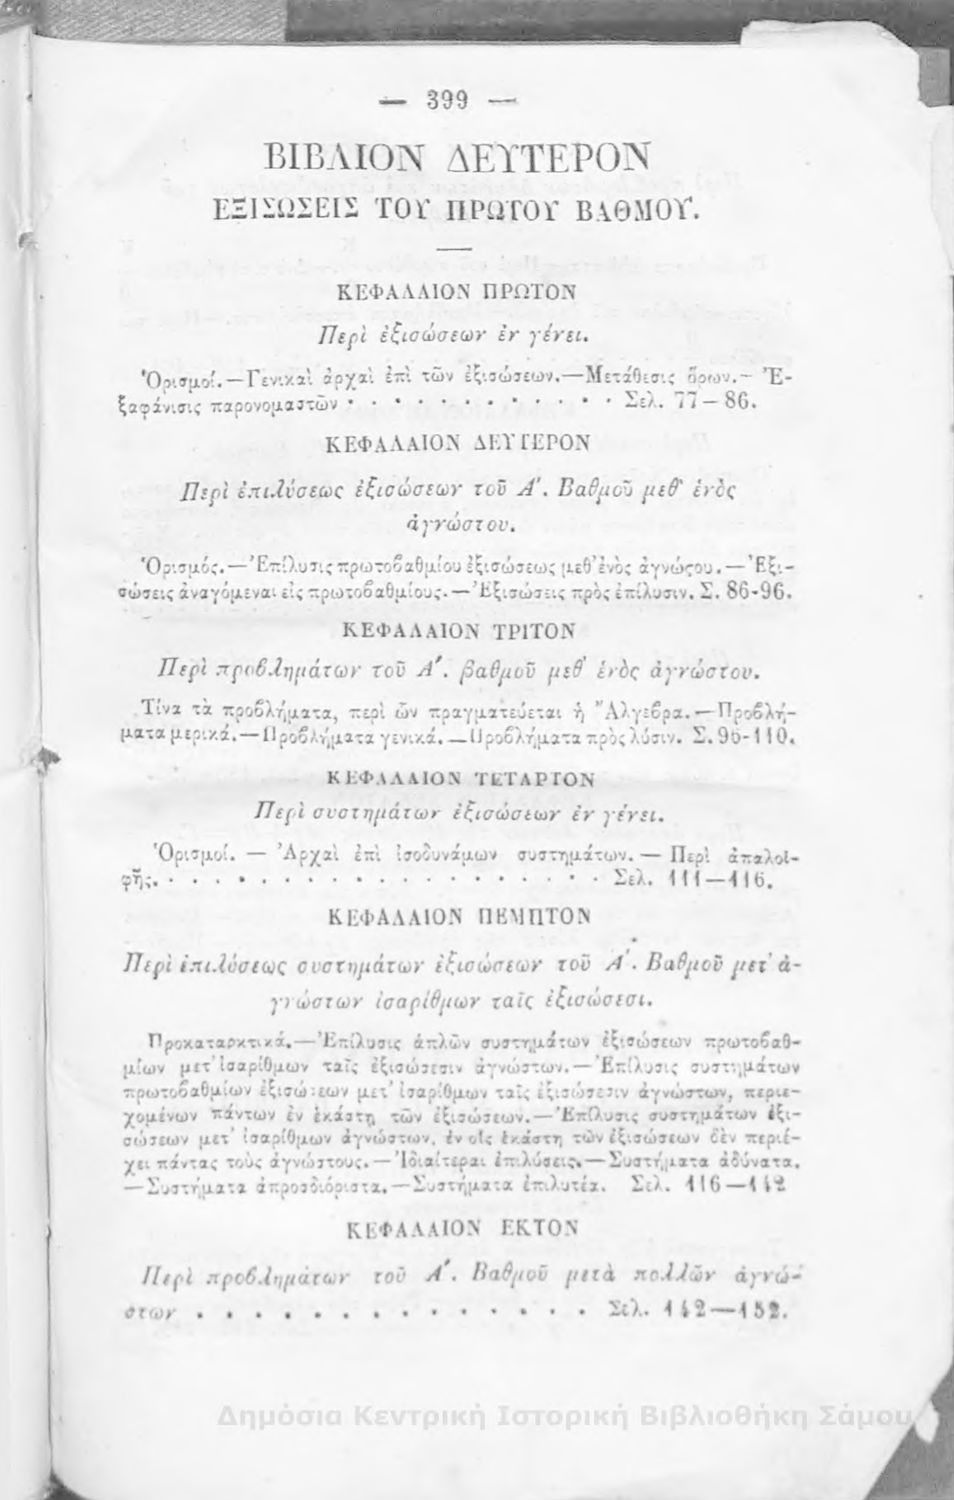 — 399 —
ΒΙΒΛΙΟΝ ΔΕΥΤΕΡΟΝ
ΕΞΙΣΩΣΕΙΣ ΤΟΥ ΠΡΩΤΟΥ ΒΑΘΜΟΥ.
ΚΕΦΑΛΑΙΟΝ ΠΡΩΤΟΝ
Περὶ ἐξισώσεων ἐν γένει.
Ὁρισμοί.—Γενικαὶ ἀρχαὶ ἐπὶ τῶν ἐξισώσεων.—Μετάθεσις ὅρων.— Ἐ-
ξαφάνισις παρονομαστῶν . . . . . . . . . . . . Σελ. 77—86.
ΚΕΦΑΛΑΙΟΝ ΔΕΥΤΕΡΟΝ
Περὶ ἐπιλύσεως ἐξισώσεων τοῦ Α΄. Βαθμοῦ μεθ' ἑνὸς
ἀγνώστου.
Ὁρισμός.—Ἐπίλυσις πρωτοβαθμίου ἐξισώσεως μεθ' ἑνὸς ἀγνώϛου.—Ἐξι-
σώσεις ἀναγόμεναι εἰς πρωτοβαθμίους.—Ἐξισώσεις πρὸς ἐπίλυσιν. Σ. 86-96.
ΚΕΦΑΛΑΙΟΝ ΤΡΙΤΟΝ
Περὶ προβλημάτων τοῦ Α΄. βαθμοῦ μεθ' ἑνὸς ἀγνώστου.
Τίνα τὰ προβλήματα, περὶ ὧν πραγματεύεται ἡ Ἄλγεβρα.—Προβλή-
ματα μερικά.—Προβλήματα γενικά.—Προβλήματα πρὸς λύσιν. Σ. 96-110.
ΚΕΦΑΛΑΙΟΝ ΤΕΤΑΡΤΟΝ
Περὶ συστημάτων ἐξισώσεων ἐν γένει.
Ὁρισμοί. — Ἀρχαὶ ἐπὶ ἰσοδυνάμων συστημάτων. — Περὶ ἀπαλοι-
φῆς. . . . . . . . . . . . . . . . . . . . Σελ. 111—116.
ΚΕΦΑΛΑΙΟΝ ΠΕΜΠΤΟΝ
Περὶ ἐπιλύσεως συστημάτων ἐξισώσεων τοῦ Α΄. Βαθμοῦ μετ' ἀ-
γνώστων ἰσαρίθμων ταῖς ἐξισώσεσι.
Προκαταρκτικά.—Ἐπίλυσις ἁπλῶν συστημάτων ἐξισώσεων πρωτοβαθ-
μίων μετ' ἰσαρίθμων ταῖς ἐξισώσεσιν ἀγνώστων.—Ἐπίλυσις συστημάτων
πρωτοβαθμίων ἐξισώσεων μετ' ἰσαρίθμων ταῖς ἐξισώσεσιν ἀγνώστων, περιε-
χομένων πάντων ἐν ἑκάστῃ τῶν ἐξισώσεων.—Ἐπίλυσις συστημάτων ἐξι-
σώσεων μετ' ἰσαρίθμων ἀγνώστων, ἐν οἷς ἑκάστη τῶν ἐξισώσεων δὲν περιέ-
χει πάντας τοὺς ἀγνώστους.—Ἰδιαίτεραι ἐπιλύσεις.—Συστήματα ἀδύνατα.
—Συστήματα ἀπροσδιόριστα.—Συστήματα ἐπιλυτέα. Σελ. 116—142
ΚΕΦΑΛΑΙΟΝ ΕΚΤΟΝ
Περὶ προβλημάτων τοῦ Α΄. Βαθμοῦ μετὰ πολλῶν ἀγνώ-
στων . . . . . . . . . . . . . . Σελ. 142—152.
Δημόσια Κεντρική Ιστορική Βιβλιοθήκη Σάμου